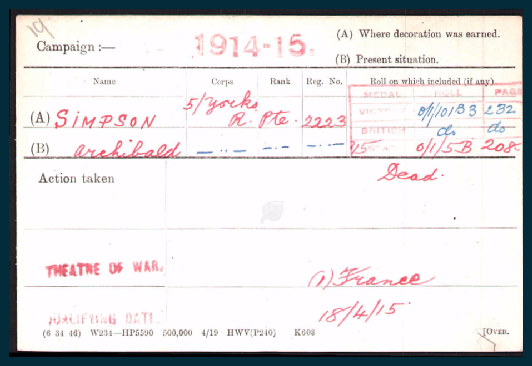 19
Campaign :— 1914-15. (A) Where decoration was earned.
(B) Present situation.
Name Corps Rank Reg. No. Roll on which included (if any).
MEDAL ROLL PAGE
(A) SIMPSON 5/Yorks R. Pte. 2223 VICTORY O/1/101B3 232
BRITISH do do
(B) Archibald — " — — " — — " — 15 STAR O/1/5B 208
Action taken Dead.
THEATRE OF WAR. (1) France
QUALIFYING DATE. 18/4/15
(6 34 46) W234—HP5590 500,000 4/19 HWV(P240) K608 [OVER.